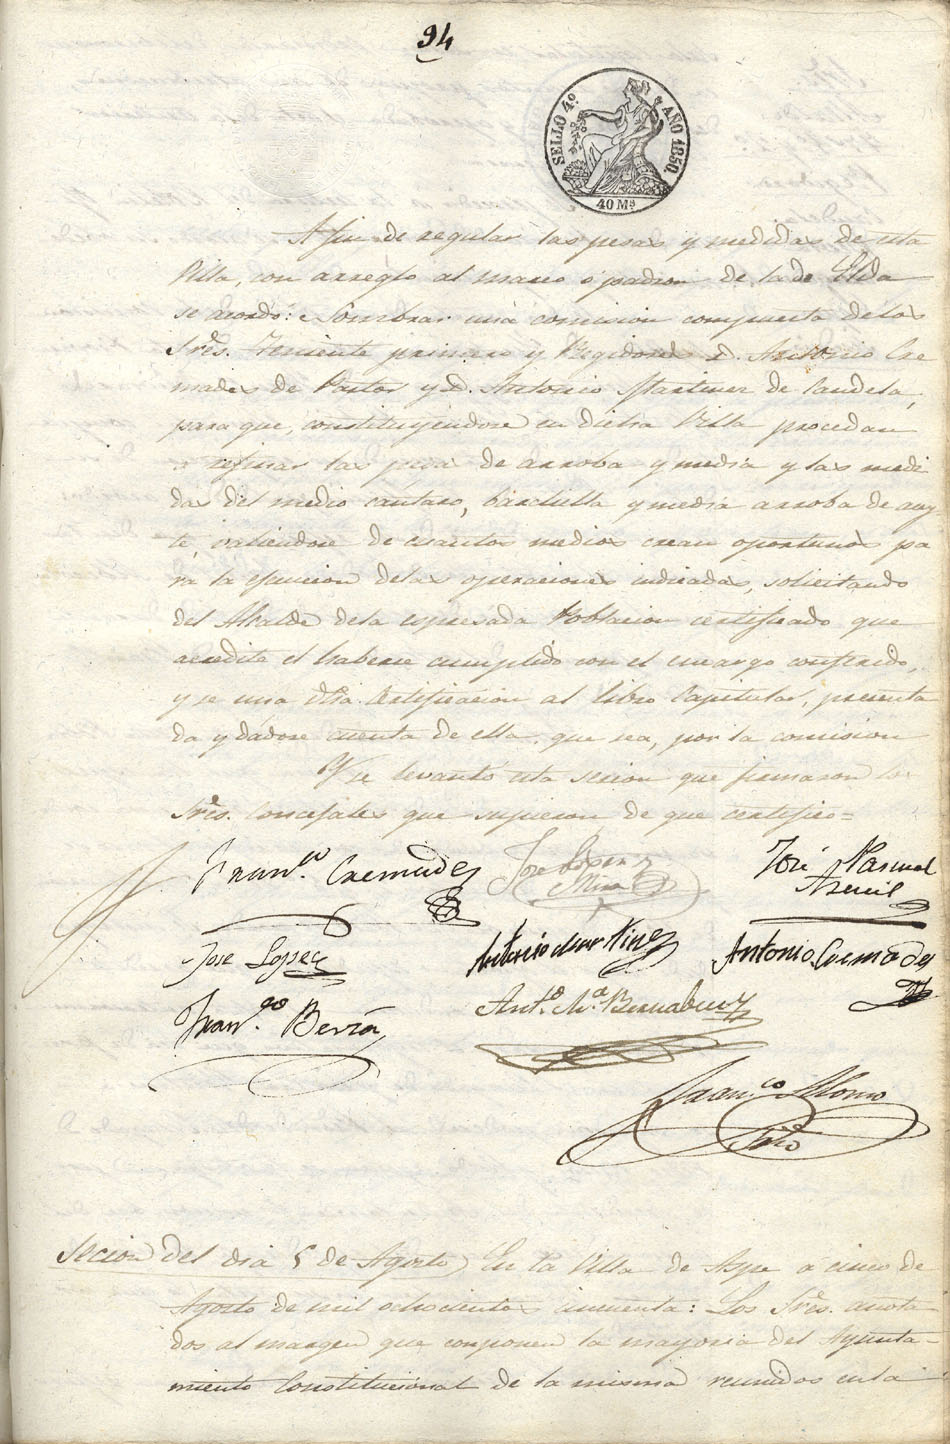 94
SELLO 4º AÑO 1850.
40 Ms
A fin de regular las pesas y medidas de esta
Villa, con arreglo al marco o padron de la de Elda
se acordó: Nombrar una comision compuesta de los
Sres. Teniente primero y Regidores D. Antonio Cre
mades de Pastor y D. Antonio Martinez de Candela,
para que, constituyendose en dicha Villa procedan
a afinar las pesas de arroba y media y las medi
das del medio cantaro, barchilla y media arroba de acey
te, valiendose de cuantos medios crean oportunos pa
ra la ejecucion de las operaciones indicadas, solicitando
del Alcalde de la espresada Poblacion certificado que
acredite el haberse cumplido con el encargo conferido,
y se una dha. certificacion al libro Capitular, presenta
da y dádose cuenta de ella, que sea, por la comision
Y se levantó esta secion que firmaron los
Sres. Concejales que supieron de que certifico=
Franco. Cremades
José Lopez y Mira
José Pascual Asencil
José Lopez
Antonio Martinez
Antonio Cremades
Franco. Berná
Anto. Ma. Bernabeu
Franco. Alonso
Srio
Secion del dia 5 de Agosto) En la Villa de Aspe a cinco de
Agosto de mil ochocientos cincuenta: Los Sres. anota
dos al margen que componen la mayoria del Ayunta-
miento Constitucional de la misma reunidos en la